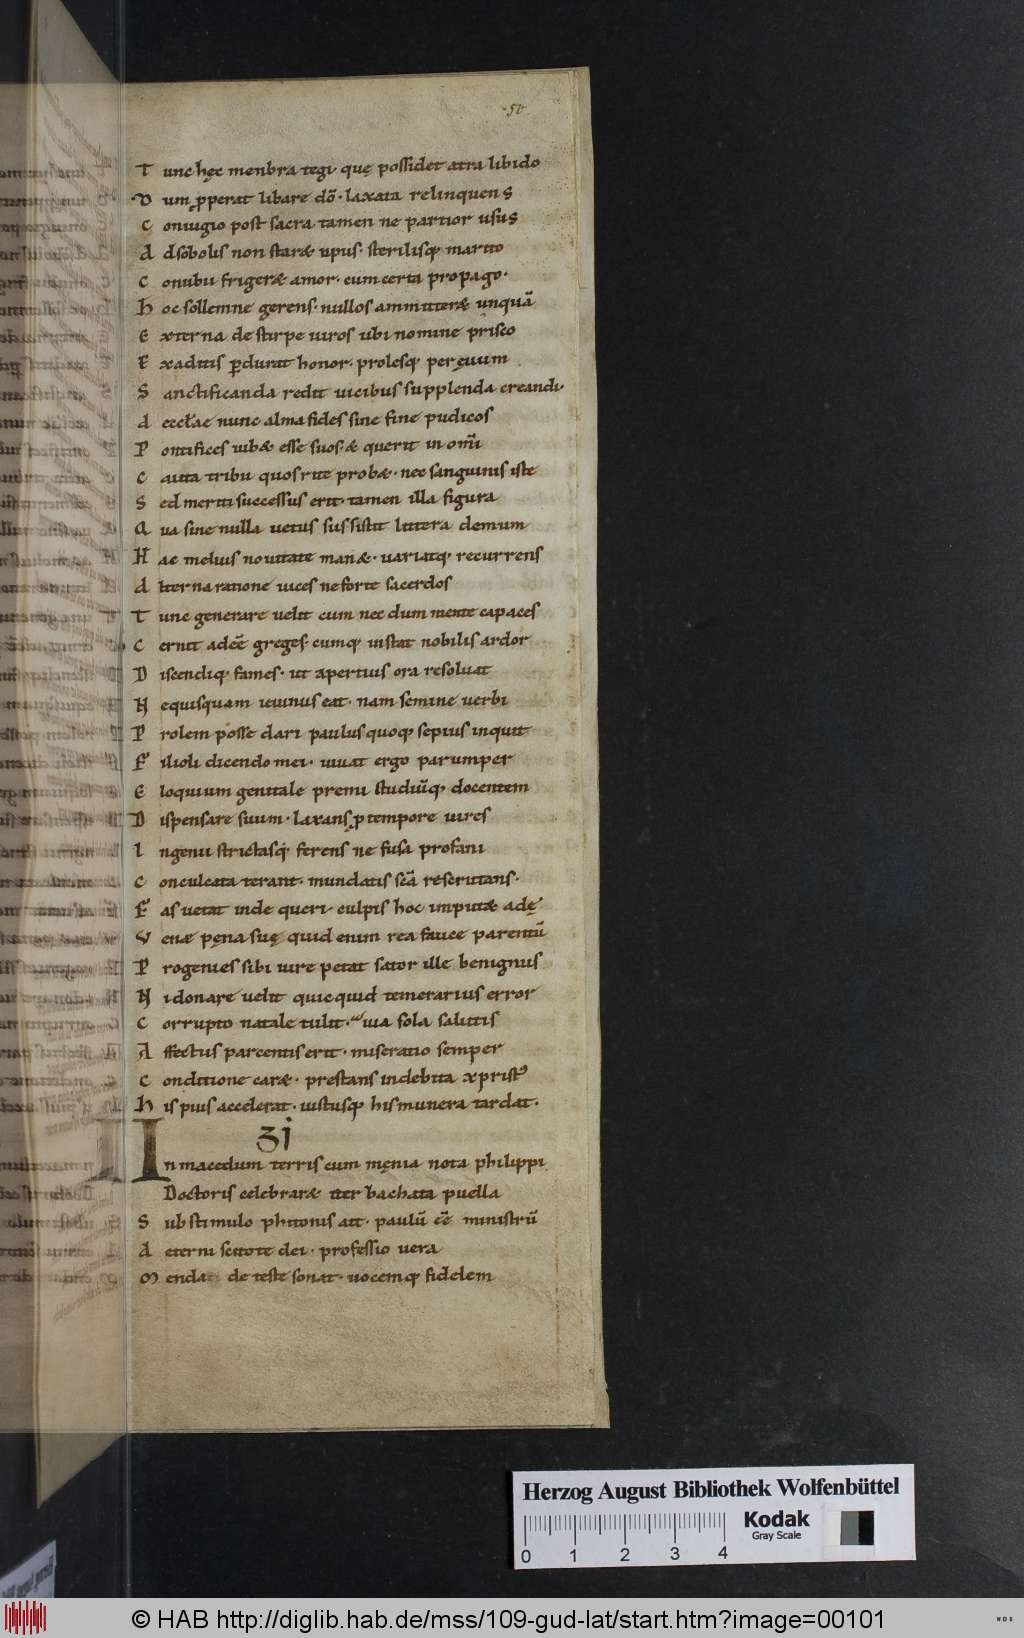 50
Tunc hęc menbra tegi quę possidet atra libido
Dum ꝓperat libare dō laxata relinquens
Coniugio post sacra tamen ne partior usus
Adsobolis non staræ opus sterilisq; marito
Conubii frigeræ amor cum certa propago
Hoc sollemne gerens nullos ammitteræ unquā
Externa de stirpe uiros ubi nomine prisco
Exaditis ꝑdurat honor prolesq; per ęuum
Sanctificanda redit uicibus supplenda creandi
Aecclae nunc alma fides sine fine pudicos
Pontifices iubæ esse suos æ querit in omi
Cauta tribu quos rite probæ nec sanguinis iste
Sed meriti successus erit tamen illa figura
Qua sine nulla uetus sussistit littera demum
Hac melius nouitate manæ uariatq; recurrens
Alterna ratione uices ne forte sacerdos
Tunc generare uelit cum nec dum mente capaces
Cernit adeē greges cumq; instat nobilis ardor
Discendiq; fames ut apertius ora resoluat
Nequisquam ieiunus eat nam semine uerbi
Prolem posse dari paulus quoq; sepius inquit
Filioli dicendo mei uiuat ergo parumper
Eloquium genitale premi studiūq; docentem
Dispensare suum laxans ꝓ tempore uires
Ingenii strictasq; ferens ne fusa profani
Conculcata terant mundatis scā rescruttans
Fas uetat inde queri culpis hoc imputæ adę
Venæ pęna suę quid enim rea fauce parentū
Progenies sibi iure petat sator ille benignus
Ni donare uelit quicquid temerarius error
Corrupto natale tulit uia sola salutis
Affectus parcentis erit miseratio semper
Conditione caræ prestans indebita xpristꝰ
His pius accelerat iustusq; his munera tardat
In macedum terris cum męnia nota philippi
Doctoris celebraræ iter bachata puella
Sub stimulo phitonis ait paulū eē ministrū
Aeterni scitote dei professio uera
Menda de teste sonat uocemq; fidelem
Herzog August Bibliothek Wolfenbüttel
Kodak
Gray Scale
0 1 2 3 4
© HAB http://diglib.hab.de/mss/109-gud-lat/start.htm?image=00101